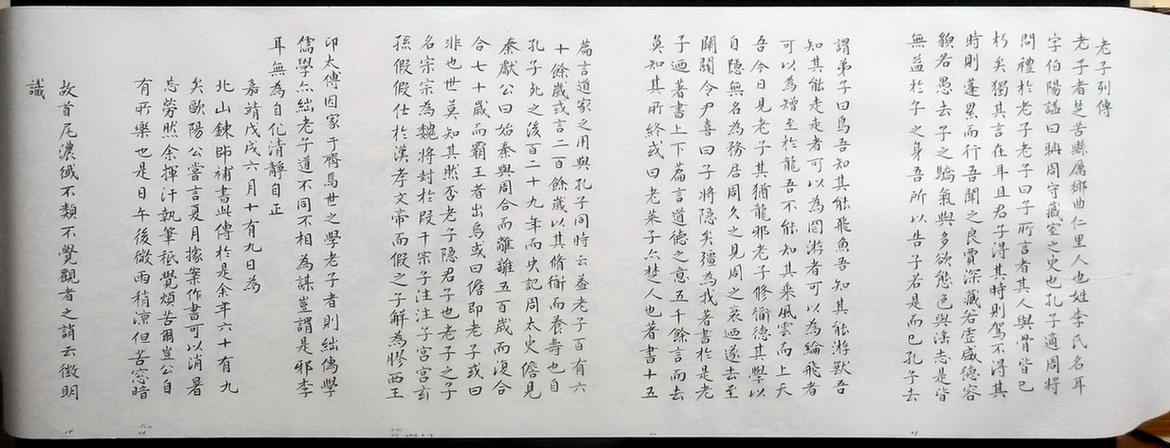 老子列傳
老子者楚苦縣厲鄉曲仁里人也姓李氏名耳
字伯陽謚曰聃周守藏室之史也孔子適周將
問禮於老子老子曰子所言者其人與骨皆已
朽矣獨其言在耳且君子得其時則駕不得其
時則蓬累而行吾聞之良賈深藏若虛盛德容
貌若愚去子之驕氣與多欲態色與淫志是皆
無益於子之身吾所以告子若是而已孔子去
謂弟子曰鳥吾知其能飛魚吾知其能游獸吾
知其能走走者可以為罔游者可以為綸飛者
可以為矰至於龍吾不能知其乘風雲而上天
吾今日見老子其猶龍邪老子修衟德其學以
自隱無名為務居周久之見周之衰迺遂去至
關關令尹喜曰子將隱矣彊為我著書於是老
子迺著書上下篇言道德之意五千餘言而去
莫知其所終或曰老萊子亦楚人也著書十五
篇言道家之用與孔子同時云蓋老子百有六
十餘歲或言二百餘歲以其脩衟而養壽也自
孔子死之後百二十九年而史記周太史儋見
秦獻公曰始秦與周合而離離五百歲而復合
合七十歲而霸王者出焉或曰儋即老子或曰
非也世莫知其然否老子隱君子也老子之子
名宗宗為魏將封於段干宗子注注子宮宮玄
孫假假仕於漢孝文帝而假之子解為膠西王
卬太傅因家于齊焉世之學老子者則絀儒學
儒學亦絀老子道不同不相為謀豈謂是邪李
耳無為自化清靜自正
嘉靖戊戌六月十有九日為
北山鍊師補書此傳於是余年六十有九
矣歐陽公嘗言夏月據案作書可以消暑
忘勞然余揮汗執筆秪覺煩苦爾豈公自
有所樂也是日午後微雨稍涼但苦窓暗
故首尾濃纖不類不覺觀者之誚云徵明
識